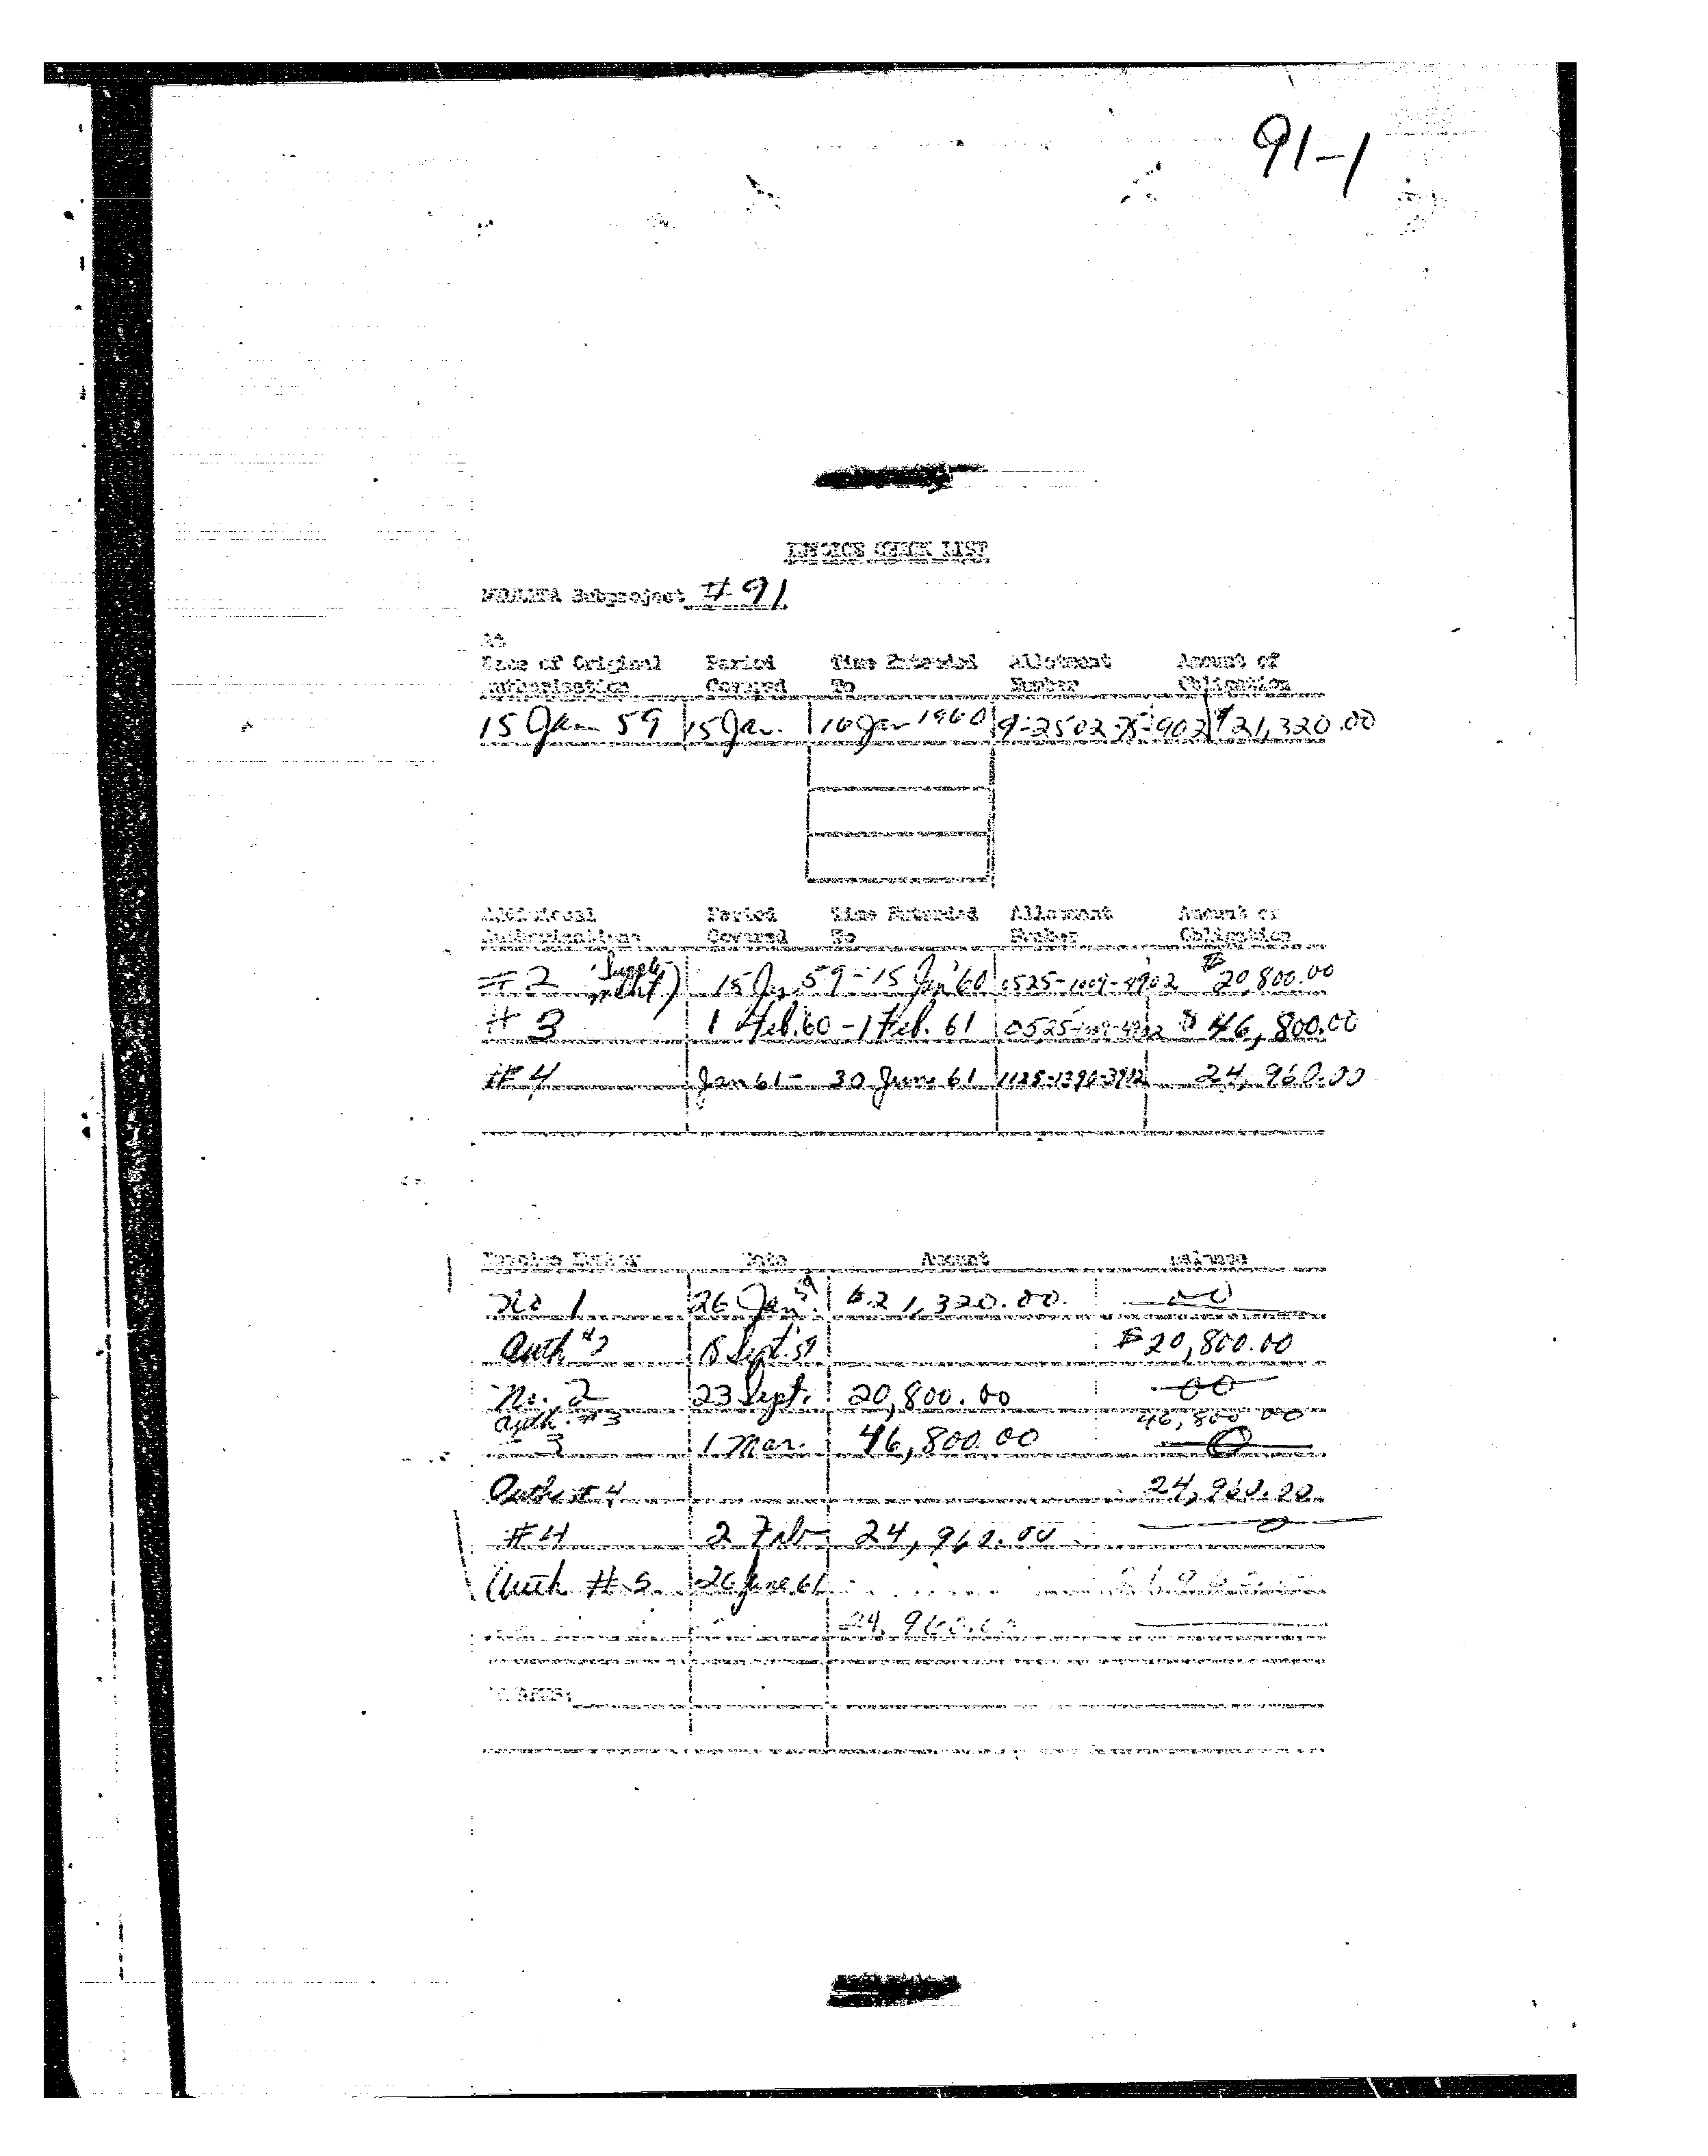 91-1
INVOICE CHECK LIST
MKULTRA Subproject #91
Date of Original Period Time Extended Allotment Amount of
Authorization Covered To Number Obligation
15 Jan 59 15 Jan. 16 Jan 1960 9-2502-75-902 $21,320.00
Additional Period Time Extended Allotment Amount of
Authorizations Covered To Number Obligation
#2 59-15 Jan '60 0525-1009-4902 $20,800.00
#3 1 Feb. 60 - 1 Feb. 61 0525-1009-4902 $46,800.00
#4 Jan 61- 30 June 61 1125-1390-3902 24,960.00
Invoice Number Date Amount Balance
No 1 26 Jan. 59 $21,320.00. 00
Auth #2 Sept. 59 $20,800.00
No. 2 23 Sept. 20,800.00 00
Auth. #3 46,800 00
3 1 Mar. 46,800.00 0
Auth #4 24,960.00
#4 2 Feb 24,960.00 0
Auth #5 26 June 61
24,960.00
REMARKS: